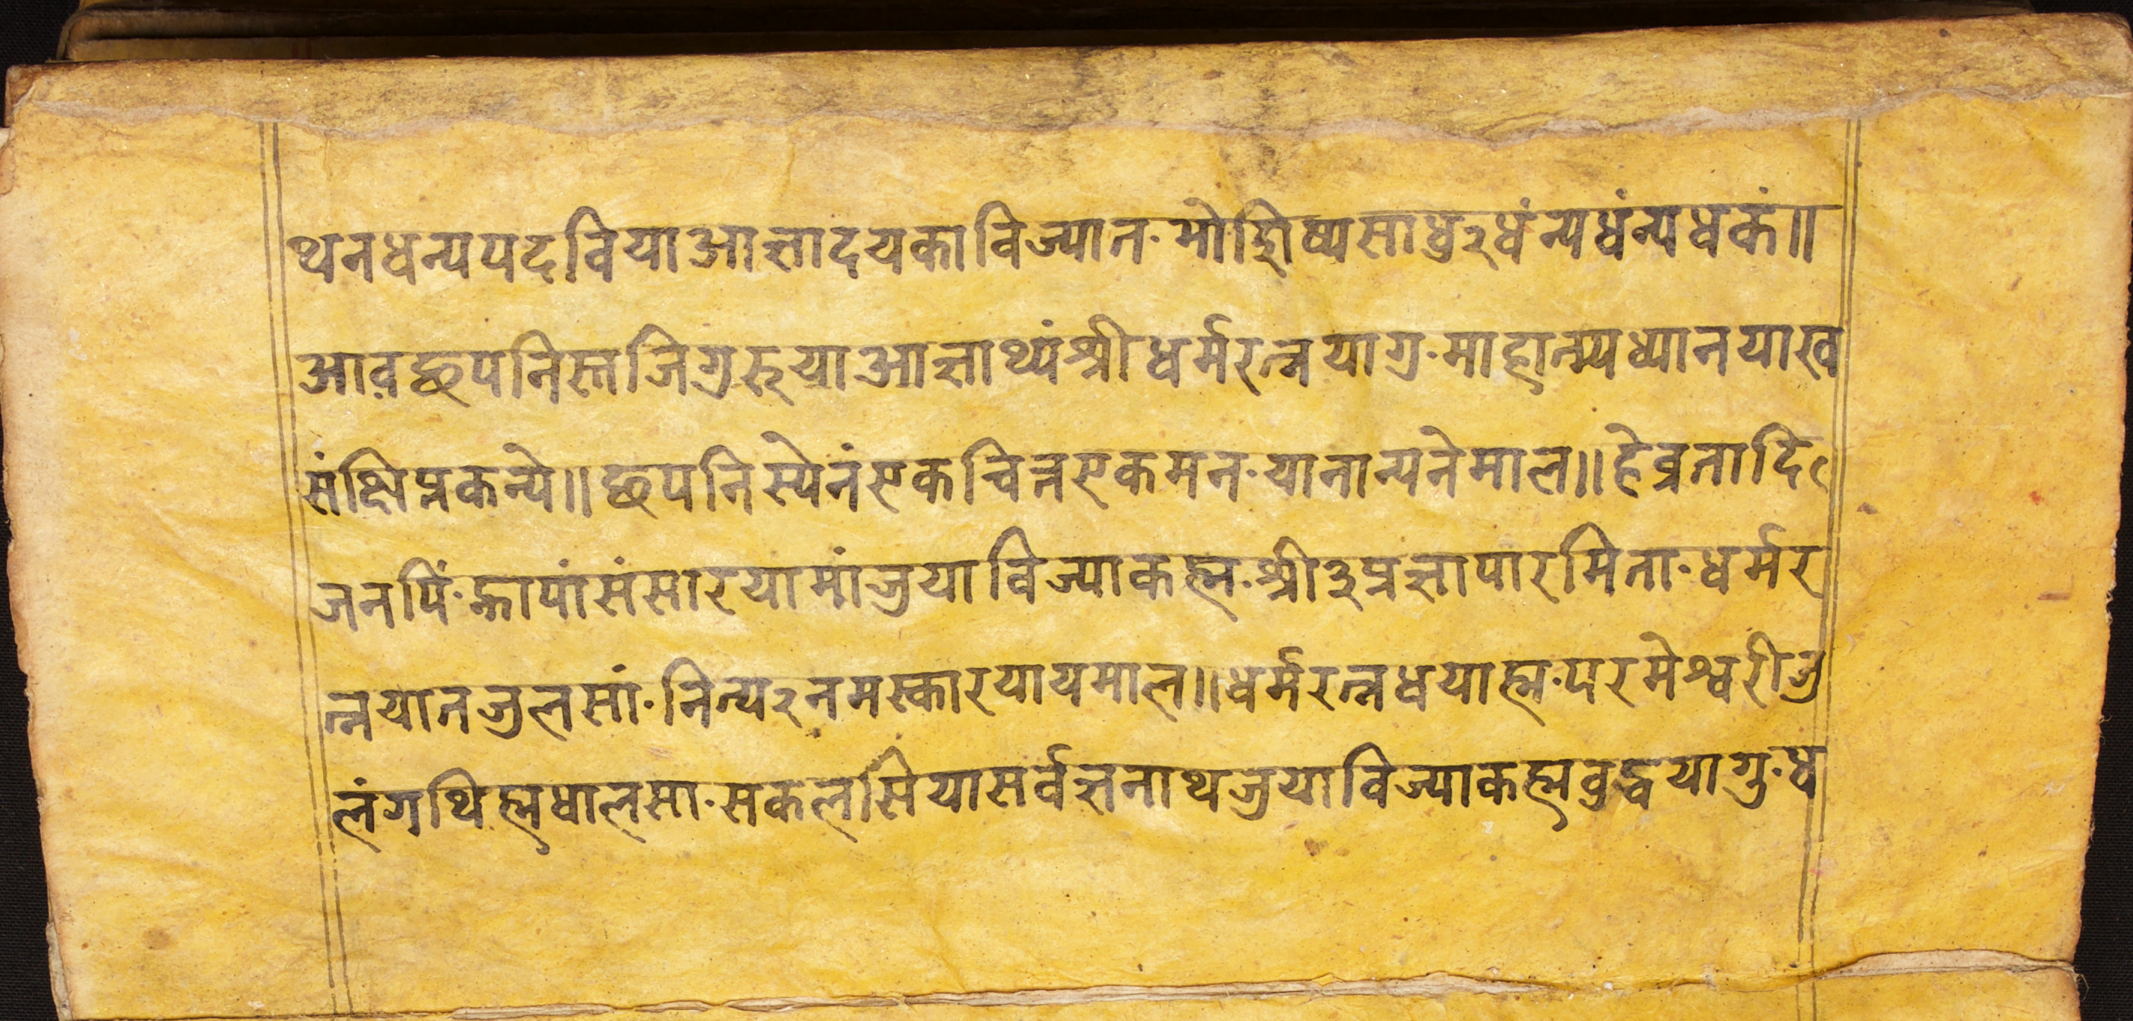 थनधन्ययदवियाआज्ञादयकाविज्यान·भोशिष्यसाधु२धंन्यधंन्यधकं॥
आवछपनिस्तजिगुरूयाआज्ञाथ्यंश्रीधर्मरत्नयागु·माहात्म्यध्यानयाख
संक्षिप्तकन्ये॥छपनिस्येनंएकचित्तएकमन·यानान्यनेमाल॥हेव्रतादि
जनपिं·झापांसंसारयामांजुयाविज्याकह्म·श्री३प्रज्ञापारमिता·धर्मर
त्नयानजुलसां·नित्य२नमस्कारयायमाल॥धर्मरत्नधयाह्म·परमेश्वरीजु
लंगथिह्मधालसा·सकलसियासर्वज्ञनाथजुयाविज्याकह्मवुद्धयागु·ध